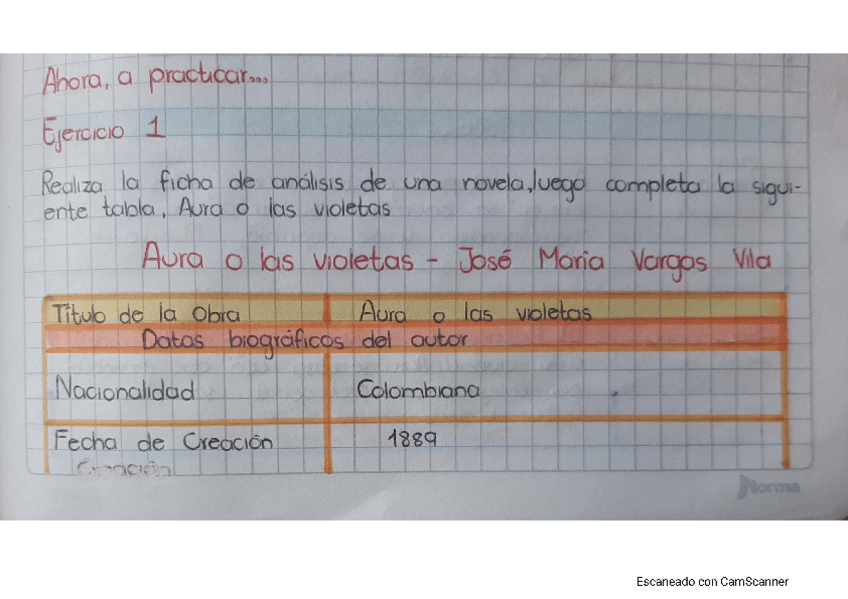 Ahora, a practicar...
Ejercicio 1
Realiza la ficha de análisis de una novela, luego completa la sigui-
ente tabla, Aura o las violetas
Aura o las violetas - José Maria Vargas Vila
Título de la Obra Aura o las violetas
Datos biográficos del autor
Nacionalidad Colombiana
Fecha de Creación 1889
Norma
Escaneado con CamScanner